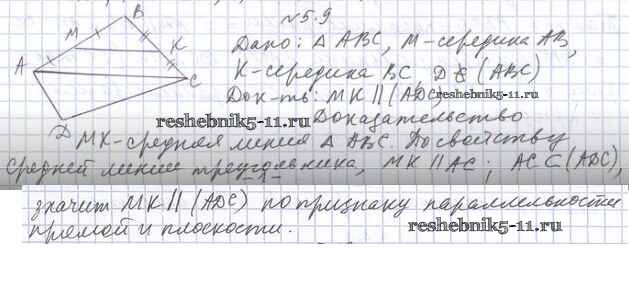 №5.9
B
M
K
A
C
D
Дано: Δ ABC, M-середина AB,
K-середина BC, D ∉ (ABC)
Док-ть: MK || (ADC)
reshebnik5-11.ru
reshebnik5-11.ru
Доказательство
MK-средняя линия Δ ABC. По свойству
средней линии треугольника, MK || AC; AC ⊂ (ADC),
значит MK || (ADC) по признаку параллельности
прямой и плоскости.
reshebnik5-11.ru